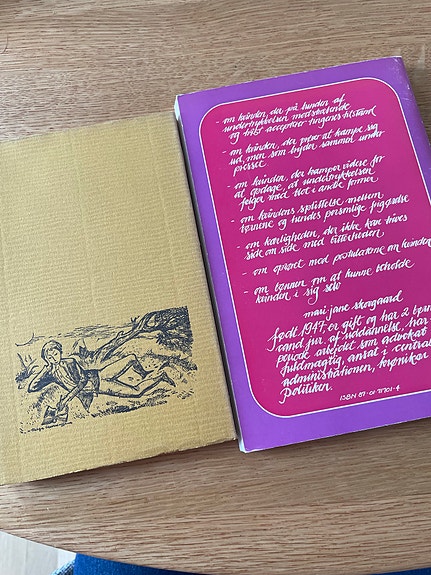 - om kvinden, der på bunden af
undertrykkelsen modstræbende
og trist accepterer tingenes tilstand
- om kvinden, der prøver at kæmpe sig
ud, men som bryder sammen under
presset
- om kvinden, der kæmper videre for
at opdage, at undertrykkelsen
følger med blot i andre former
- om kvindens splittelse mellem
børnene og hendes personlige frigørelse
- om kærligheden, der ikke kan trives
side om side med bitterheden
- om oprøret med postulaterne om kvinden
- om ønsket om at kunne beholde
kvinden i sig selv
mari jane skovgaard
født 1947, er gift og har 2 børn
cand. jur. af uddannelse, har
privat arbejdet som advokat
fuldmægtig, ansat i central
administrationen, kronikør
Politiken.
ISBN 87-01-